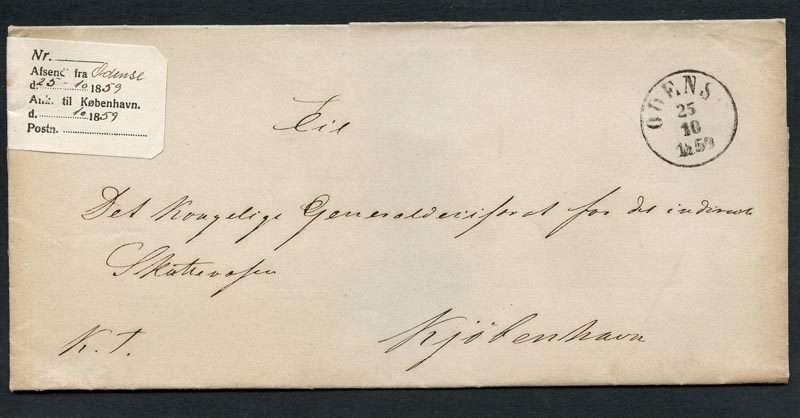 Nr.
Afsend fra Odense
d. 25-10 1859
Ank. til København.
d. 10 1859
Postn.
ODENSE
25
10
1859
Til
Det Kongelige Generaldecisorat for det indirecte
Skattevæsen
K. T.
Kjøbenhavn